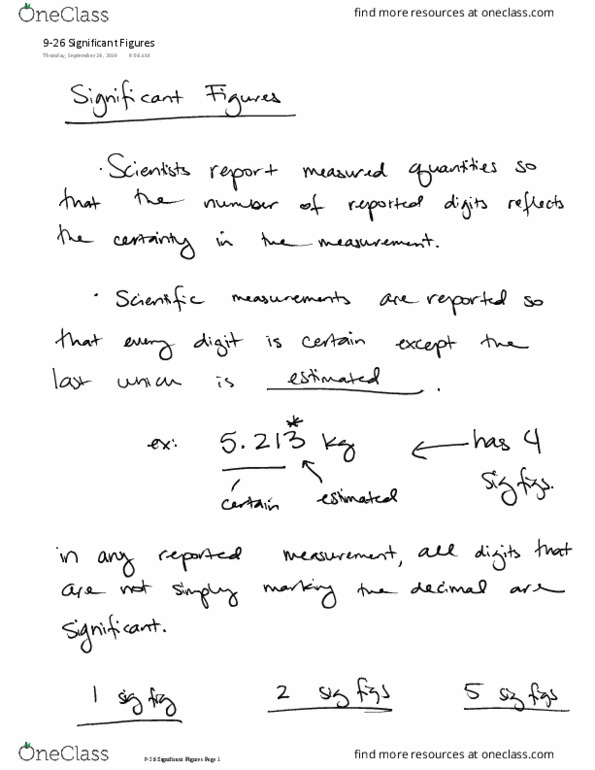 OneClass
find more resources at oneclass.com
9-26 Significant Figures
Thursday, September 26, 2019 9:56 AM
Significant Figures
· Scientists report measured quantities so
that the number of reported digits reflects
the certainty in the measurement.
· Scientific measurements are reported so
that every digit is certain except the
last which is estimated.
*
ex: 5.213 kg ← has 4
sig figs.
certain estimated
in any reported measurement, all digits that
are not simply marking the decimal are
significant.
1 sig fig 2 sig figs 5 sig figs
9-26 Significant Figures Page 1
OneClass
find more resources at oneclass.com